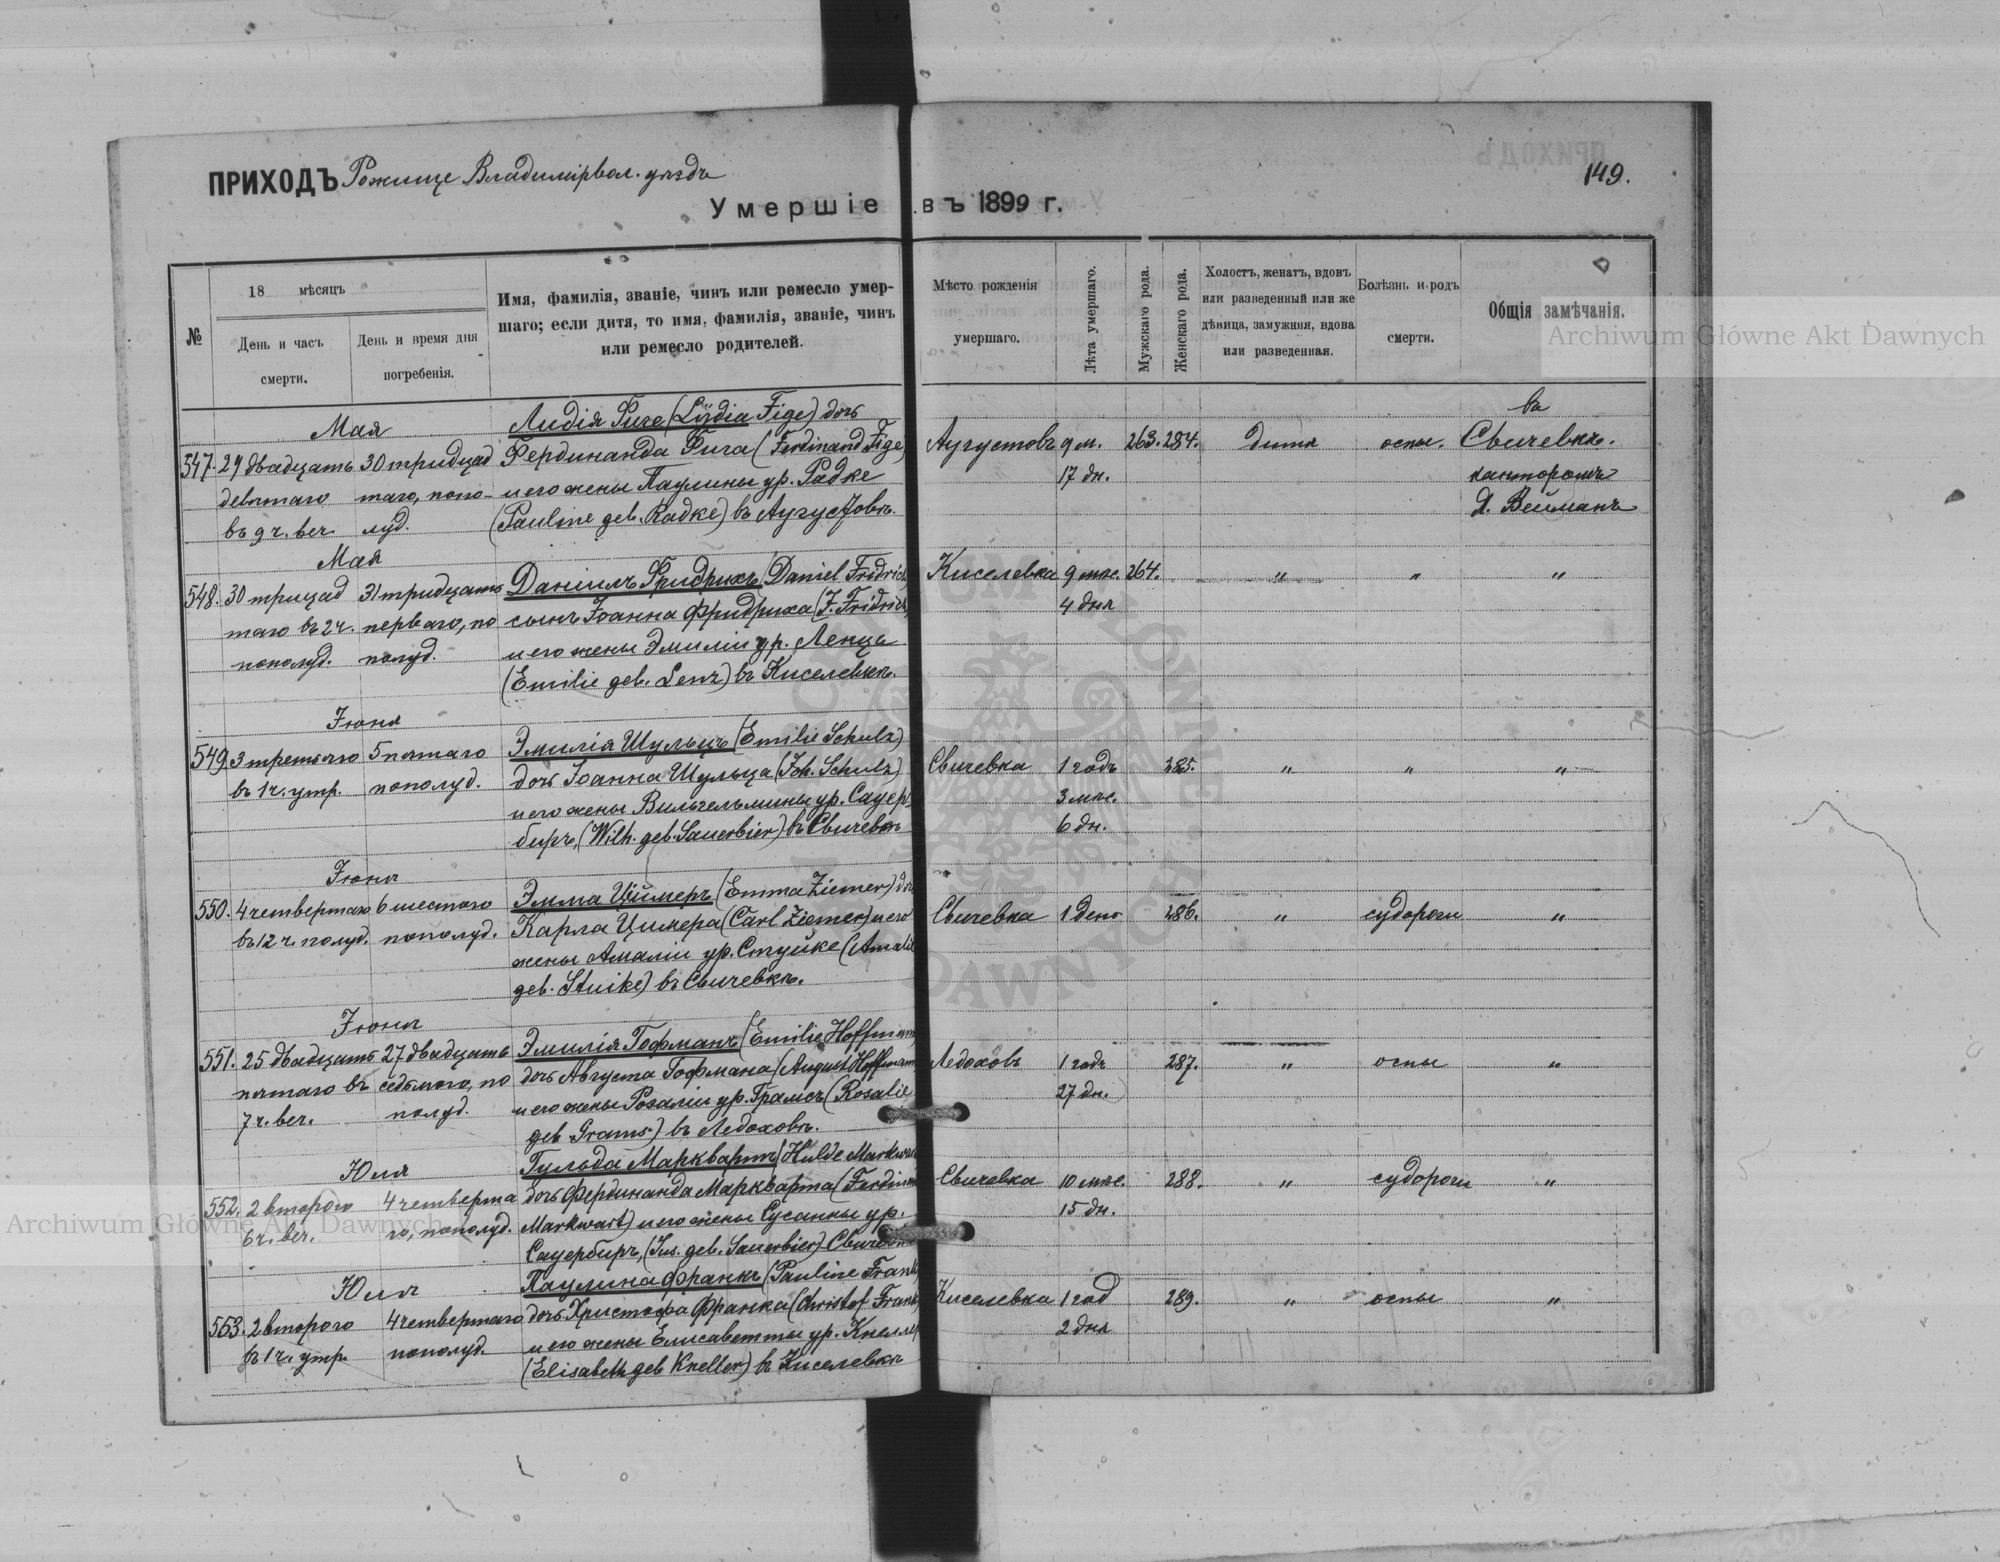 ПРИХОДЪ Рожище Владимірвол. уѣздъ
149.
Умершіе въ 1899 г.
№
18 мѣсяцъ
День и часъ смерти.
День и время дня погребенія.
Имя, фамилія, званіе, чинъ или ремесло умершаго; если дитя, то имя, фамилія, званіе, чинъ или ремесло родителей.
Мѣсто рожденія умершаго.
Лѣта умершаго.
Мужскаго рода.
Женскаго рода.
Холостъ, женатъ, вдовъ или разведенный или же дѣвица, замужняя, вдова или разведенная.
Болѣзнь и родъ смерти.
Общія замѣчанія.
Archiwum Główne Akt Dawnych
Мая Лидія Фиге (Lydia Fige) дочь въ
547. 29 двадцать 30 тридцад Фердинанда Фига (Ferdinand Fige) Аугустовъ 9 м. 263. 284. дитя оспы. Свичевкѣ.
девятаго таго, попо- и его жены Паулины ур. Радке 17 дн. канторомъ
въ 9 ч. веч. луд. (Pauline геб. Radke) въ Аугустовѣ Д. Вейманъ
Мая
548. 30 трицад 31 тридцать Даніилъ Фридрихъ (Daniel Fridrich Киселевка 9 мѣс. 264. " " "
таго въ 2 ч. перваго, по сынъ Іоанна Фридриха (J. Fridrich) 4 дня
пополуд. полуд. и его жены Эмиліи ур. Ленцъ
(Emilie геб. Lenz) въ Киселевкѣ.
Іюня
549. 3 третьяго 5 пятаго Эмилія Шульцъ (Emilie Schulz) Свичевка 1 годъ 285. " " "
въ 1 ч. утр. пополуд. дочь Іоанна Шульца (Joh. Schulz) 3 мѣс.
и его жены Вильгельмины ур. Сауер- 6 дн.
биръ, (Wilh. геб. Sauerbier) въ Свичевкѣ
Іюня
550. 4 четвертаго 6 шестого Эмма Циймеръ (Emma Ziemer) доч Свичевка 1 день 286. " судороги "
въ 12 ч. полуд. пополуд. Карла Цимера (Carl Ziemer) и его
жены Амаліи ур. Стуйке (Amalie
геб. Stuike) въ Свичевкѣ.
Іюня
551. 25 двадцать 27 двадцать Эмилія Гофманъ (Emilie Hoffmann) Ледоховъ 1 годъ 287. " оспы "
пятаго въ седьмого, по дочь Августа Гофмана (August Hoffmann 27 дн.
7 ч. веч. полуд. и его жены Розаліи ур. Грамсъ (Rosalie
геб. Grams.) въ Ледоховѣ.
Юля Гульда Марквартъ (Hulde Markwart
552. 2 второго 4 четверта дочь Фердинанда Маркварта (Ferdinand Свичевка 10 мѣс. 288. " судороги "
6 ч. веч. го, пополуд. Markwart) и его жены Сусанны ур. 15 дн.
Сауербиръ, (Sus. геб. Sauerbier) Свичевкѣ
Archiwum Główne Akt Dawnych
Юля Паулина Франкъ (Pauline Frank)
553. 2 второго 4 четвертаго дочь Христофа Франка (Christof Frank) Киселевка 1 год 289. " оспы "
въ 1 ч. утр. пополуд. и его жены Елисаветты ур. Кнеллер 2 дня
(Elisabeth геб Kneller) въ Киселевкѣ